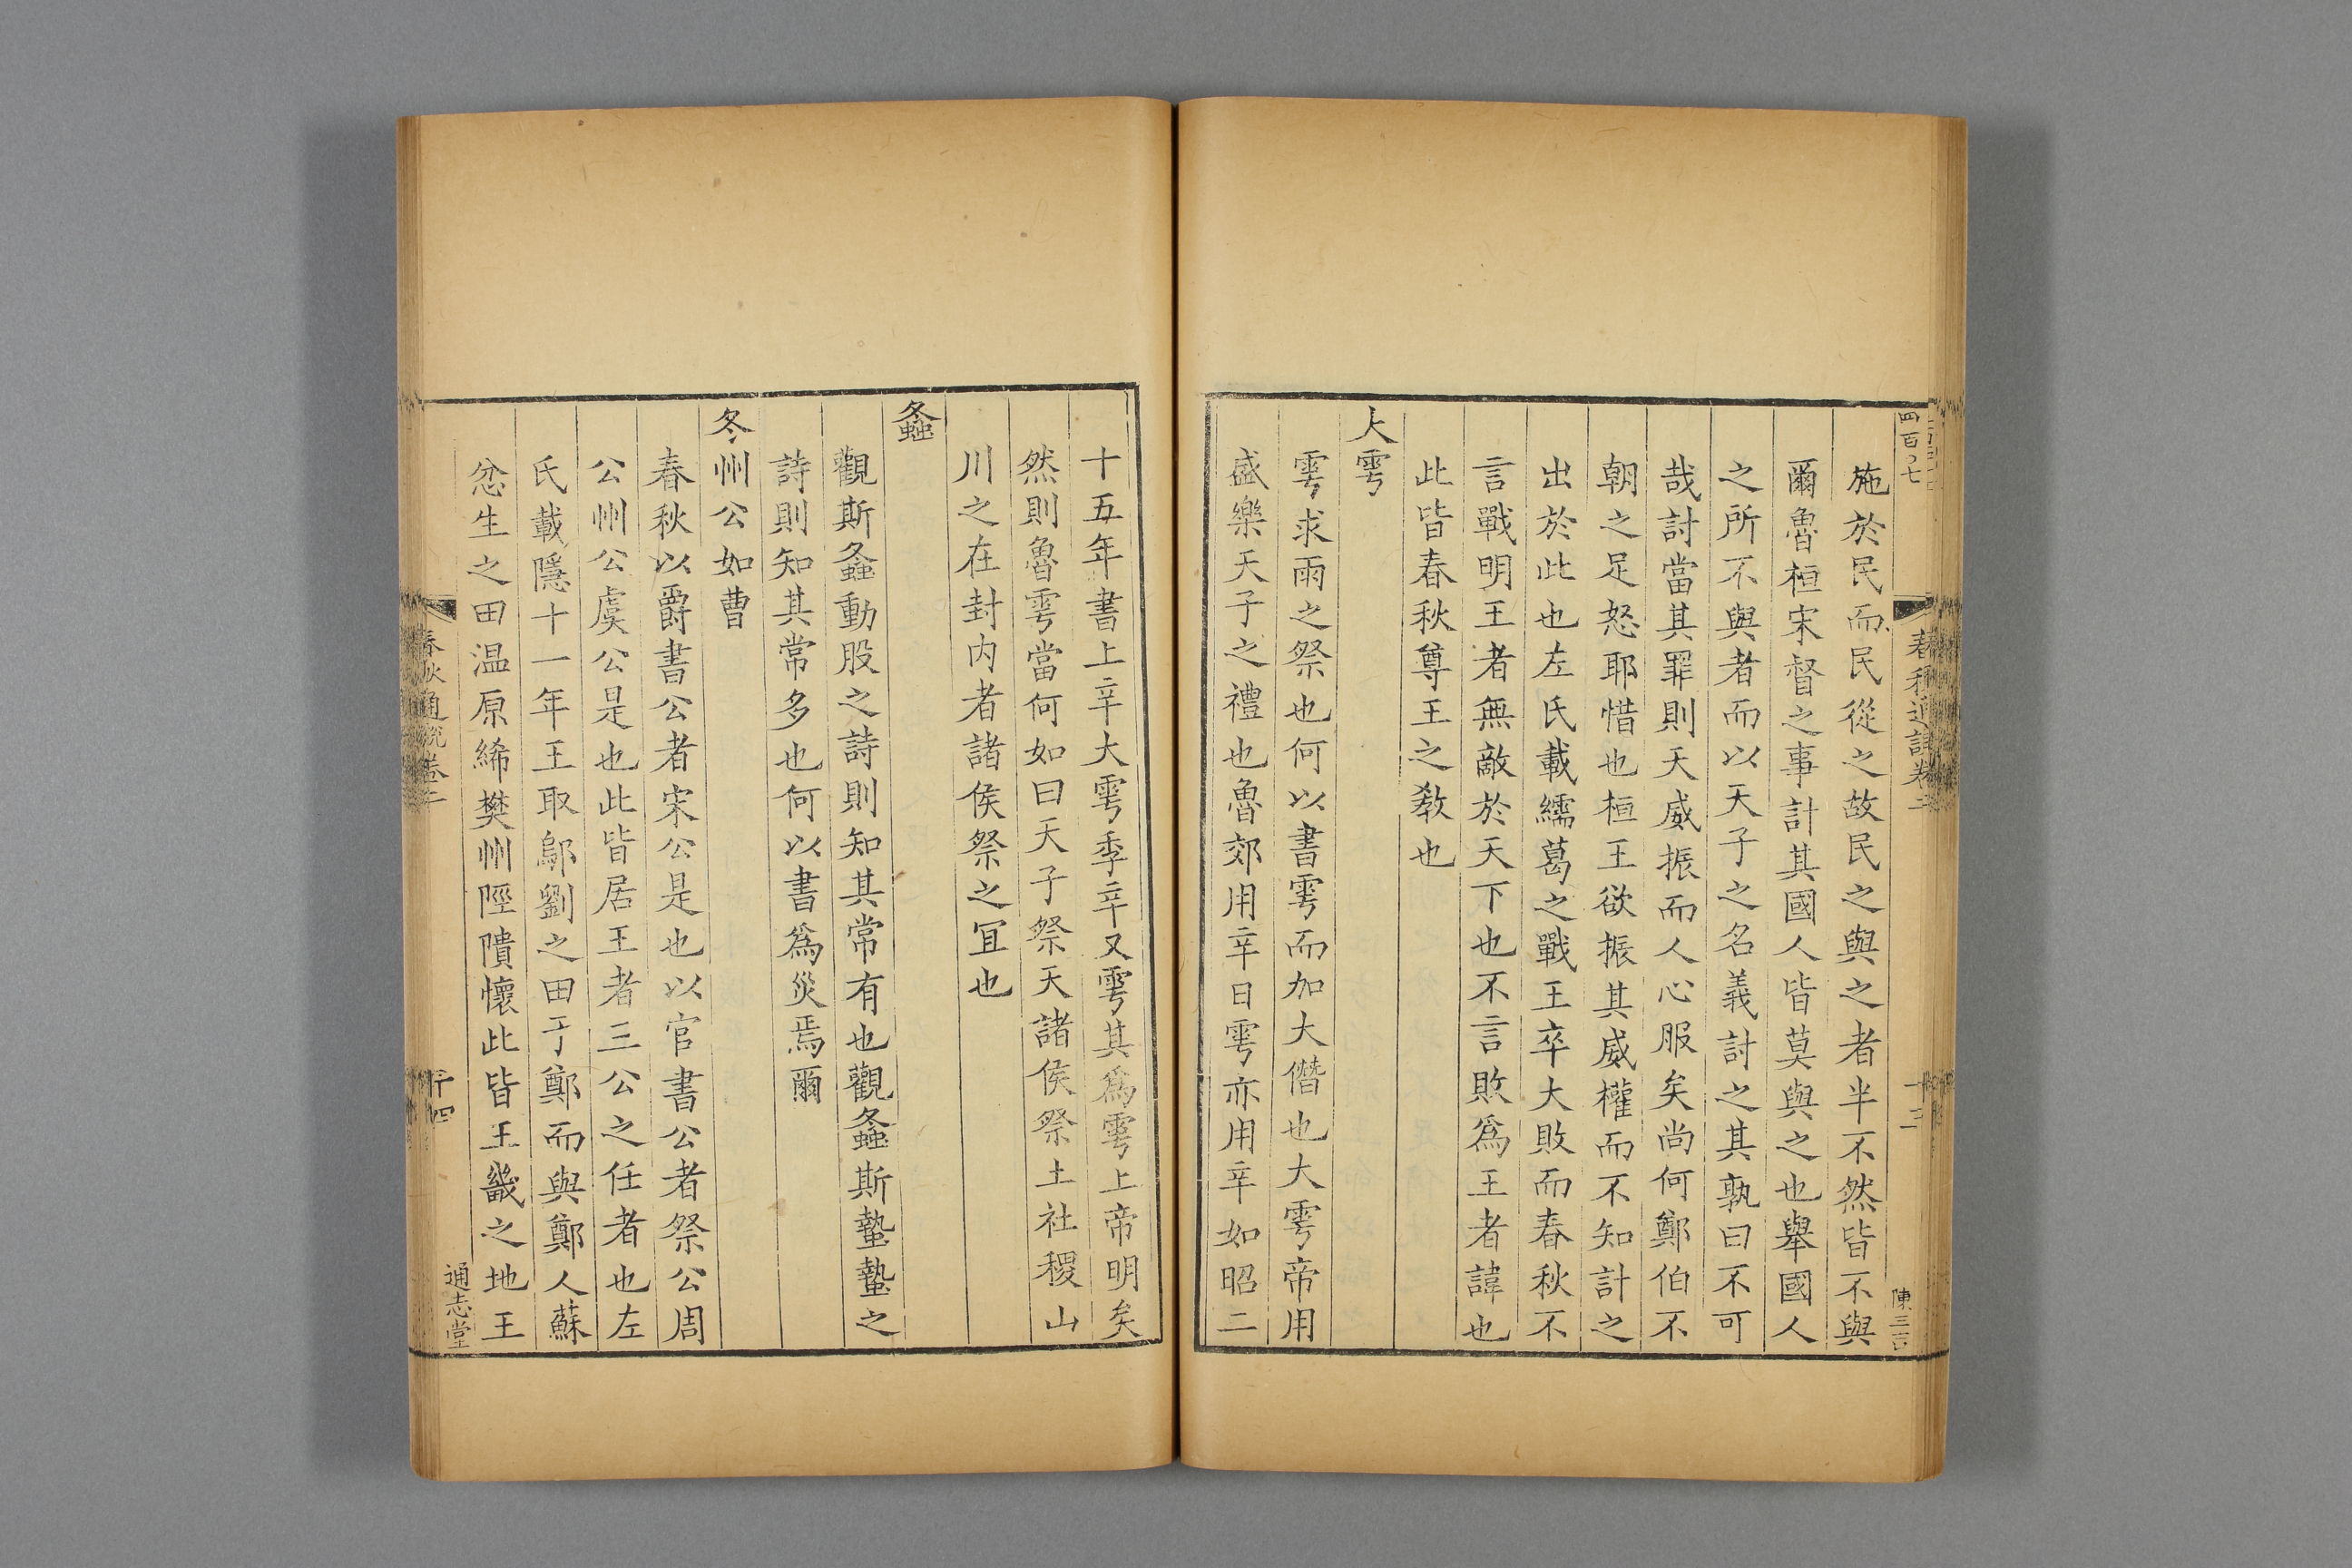 四百〇七
春秋通說卷二
十三
陳三言
施於民而民從之故民之與之者半不然皆不與
爾魯桓宋督之事計其國人皆莫與之也舉國人
之所不與者而以天子之名義討之其孰曰不可
哉討當其罪則天威振而人心服矣尚何鄭伯不
朝之足怒耶惜也桓王欲振其威權而不知計之
出於此也左氏載繻葛之戰王卒大敗而春秋不
言戰明王者無敵於天下也不言敗為王者諱也
此皆春秋尊王之敎也
大雩
雩求雨之祭也何以書雩而加大僭也大雩帝用
盛樂天子之禮也魯郊用辛日雩亦用辛如昭二
十五年書上辛大雩季辛又雩其為雩上帝明矣
然則魯雩當何如曰天子祭天諸侯祭土社稷山
川之在封内者諸侯祭之冝也
螽
觀斯螽動股之詩則知其常有也觀螽斯蟄蟄之
詩則知其常多也何以書為災焉爾
冬州公如曹
春秋以爵書公者宋公是也以官書公者祭公周
公州公虞公是也此皆居王者三公之任者也左
氏載隱十一年王取鄔劉之田于鄭而與鄭人蘇
忿生之田温原絺樊州陘隤懷此皆王畿之地王
春秋通說卷二
十四
通志堂